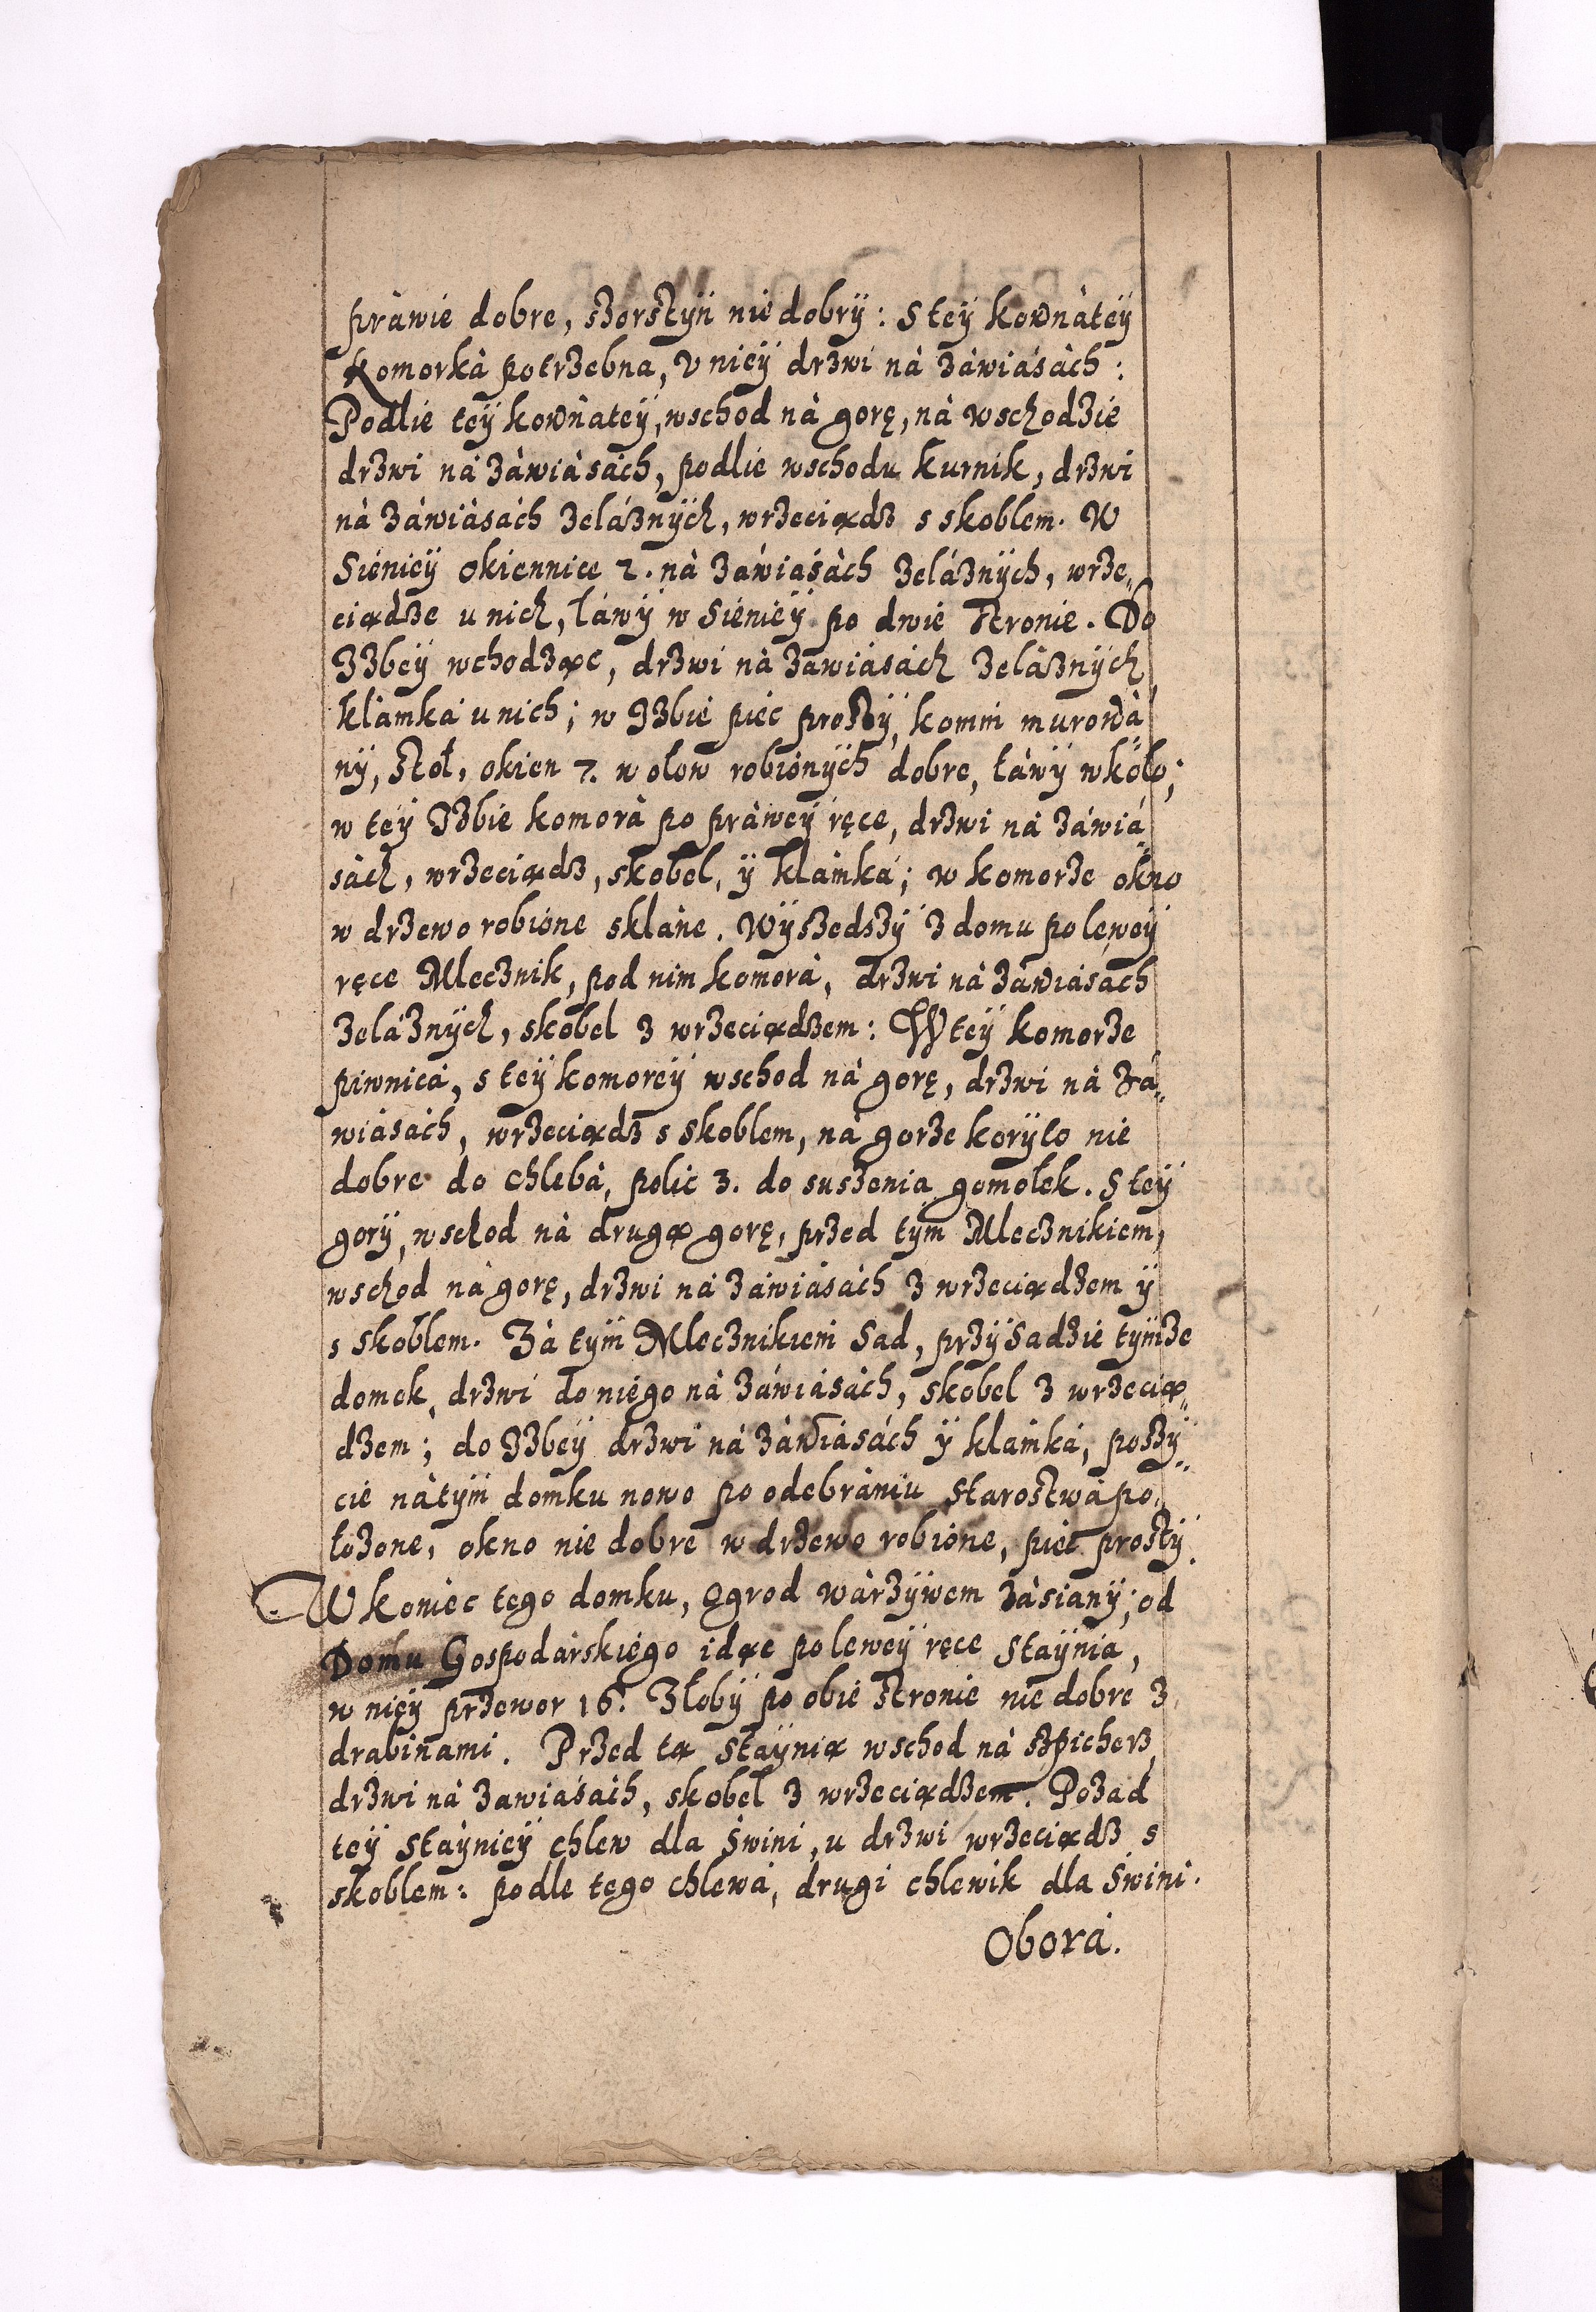 práwie dobre, szorsztyn nie dobry: S tey kownátey
Komorká potrzebna, v niey drzwi ná záwiásách:
Podlie tey kownátey, wschod ná gorę, ná wschodzie
drzwi ná záwiásách, podlie wschodu kurnik, drzwi
ná záwiásách zeláznych, wrzeciądz s skoblem. W
Sieniey okiennice 2. ná záwiásách zeláznych, wrze„
ciądze u nich, łáwy w Sieniey po dwie stronie. Do
Izbey wchodząc, drzwi ná záwiásách zeláznych
klámká u nich; w Izbie piec prosty, komin murowá„
ny, stoł, okien 7. w ołow robionych dobre, łáwy wkoło;
w tey Izbie komorá po práwey ręce, drzwi ná záwiá„
sách, wrzeciądz, skobel, y klámká; w komorze okno
w drzewo robione sklane. Wyszedszy z domu po lewey
ręce Mlecznik, pod nim komorá, drzwi ná záwiásách
zeláznych, skobel z wrzeciądzem: W tey komorze
piwnicá, s tey komorey wschod ná gorę, drzwi ná zá„
wiásách, wrzeciądz s skoblem, ná gorze koryto nie
dobre do chlebá, polic 3. do suszenia gomołek. S tey
gory, wschod ná drugą gorę, przed tym Mlecznikiem,
wschod ná gorę, drzwi ná záwiásách z wrzeciądzem y
s skoblem. Zá tym Mlecznikiem Sad, przy Sadzie tymze
domek, drzwi do niego ná záwiásách, skobel z wrzecią„
dzem; do Izbey drzwi ná záwiásách y klámká, poszy„
cie ná tym domku nowo po odebrániu Starostwá po„
łozone, okno nie dobre w drzewo robione, piec prosty.
W koniec tego domku, Ogrod wárzywem zásiany; od
Domu Gospodárskiego idąc po lewey ręce Staynia,
w niey przewor 16. Złoby po obie stronie nie dobre z
drabinami. Przed tą Staynią wschod ná szpicherz,
drzwi ná zawiásách, skobel z wrzeciądzem. Pozad
tey Stáyniey chlew dla Swini, u drzwi wrzeciądz s
skoblem: podle tego chlewá, drugi chlewik dla Swini.
Oborá.